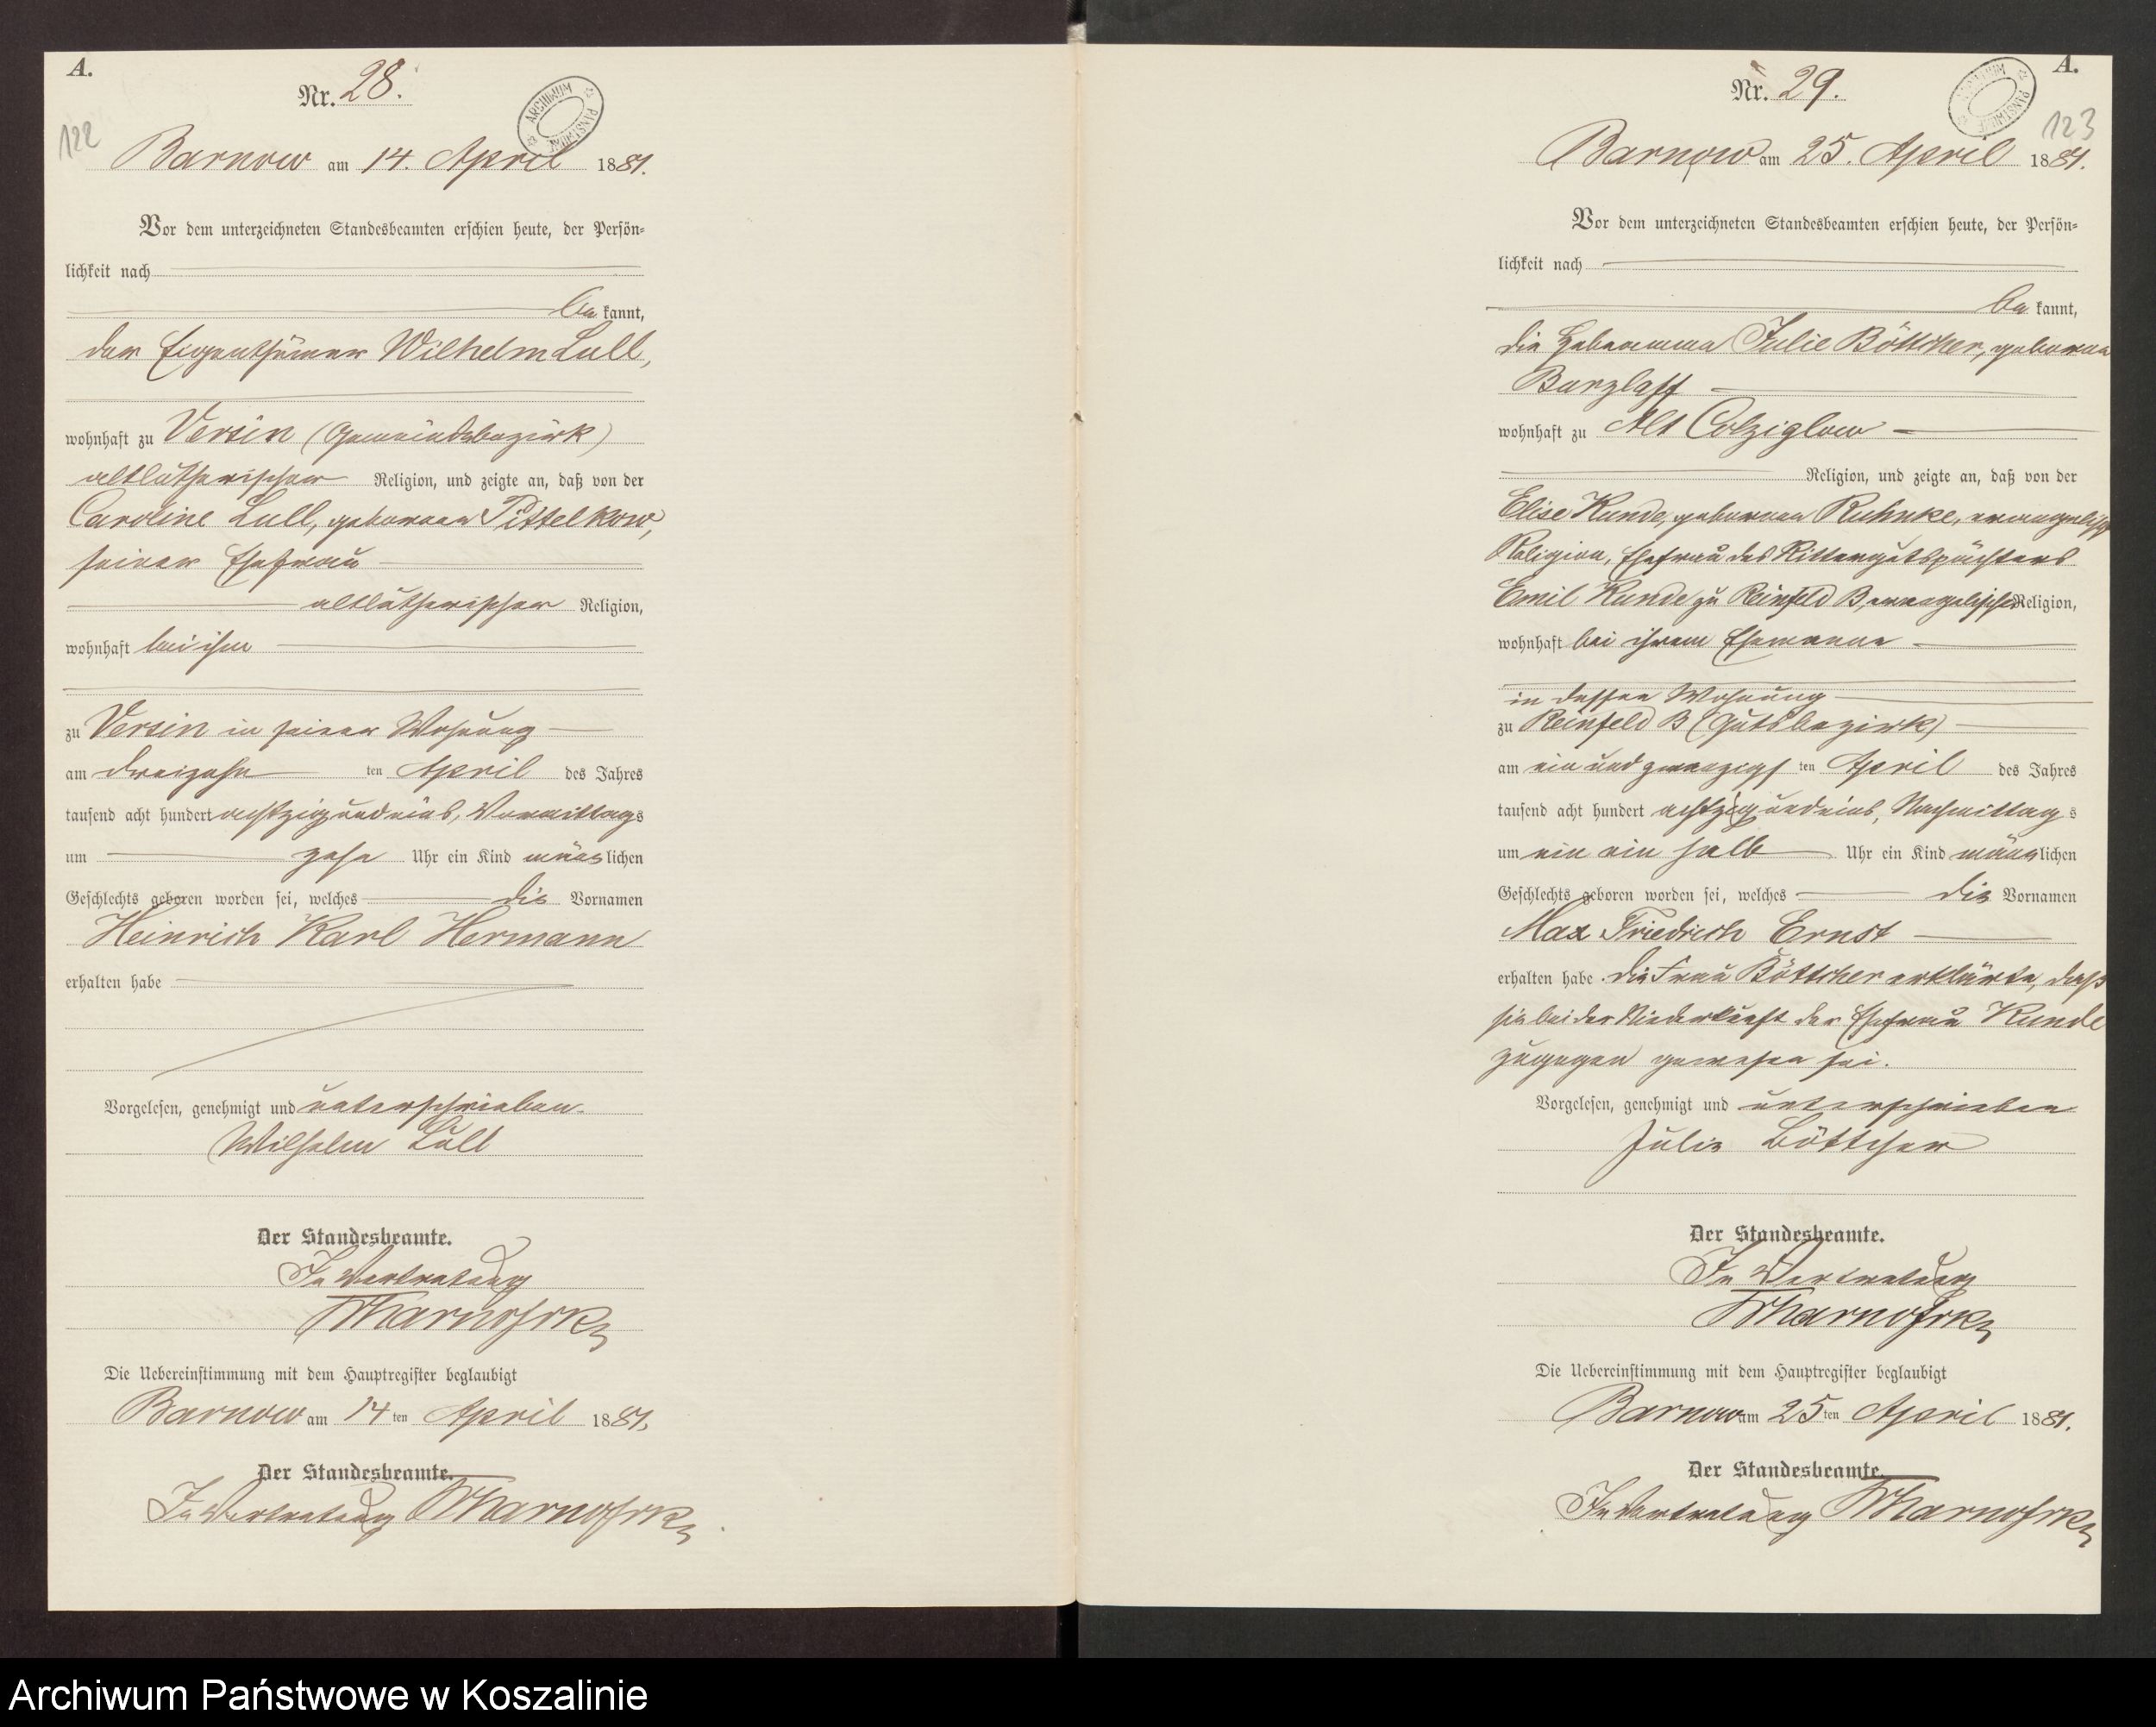 A.
Nr. 28.
ARCHIWUM PAŃSTWOWE
122
Barnow am 14. April 1881.
Vor dem unterzeichneten Standesbeamten erschien heute, der Persön=
lichkeit nach
be kannt,
der Eigenthümer Wilhelm Lull,
wohnhaft zu Versin (Gemeindebezirk)
altlutherischer Religion, und zeigte an, daß von der
Caroline Lull, geborenen Pittelkow,
seiner Ehefrau
altlutherischer Religion,
wohnhaft bei ihm
zu Versin in seiner Wohnung
am dreizehn ten April des Jahres
tausend acht hundert achtzig und eins, Vormittags
um zehn Uhr ein Kind männlichen
Geschlechts geboren worden sei, welches die Vornamen
Heinrich Karl Hermann
erhalten habe
Vorgelesen, genehmigt und unterschrieben.
Wilhelm Lull
Der Standesbeamte.
In Vertretung
Die Uebereinstimmung mit dem Hauptregister beglaubigt
Barnow am 14 ten April 1881.
Der Standesbeamte.
In Vertretung
A.
Nr. 29.
ARCHIWUM PAŃSTWOWE
123
Barnow am 25. April 1881.
Vor dem unterzeichneten Standesbeamten erschien heute, der Persön=
lichkeit nach
be kannt,
die Hebamme Julie Böttcher, geborene
Barzlaff
wohnhaft zu Alt Colziglow
Religion, und zeigte an, daß von der
Elise Kunde, geborenen Ruhnke, evangelisch
Religion, Ehefrau des Rittergutspächters
Emil Kunde zu Reinfeld B, evangelischer Religion,
wohnhaft bei ihrem Ehemanne
in dessen Wohnung
zu Reinfeld B (Gutsbezirk)
am ein und zwanzigs ten April des Jahres
tausend acht hundert achtzig und eins, Nachmittags
um ein ein halb Uhr ein Kind männlichen
Geschlechts geboren worden sei, welches die Vornamen
Max Friedrich Ernst
erhalten habe. Die Frau Böttcher erklärte, daß
sie bei der Niederkunft der Ehefrau Kunde
zugegen gewesen sei.
Vorgelesen, genehmigt und unterschrieben
Julie Böttcher
Der Standesbeamte.
In Vertretung
Die Uebereinstimmung mit dem Hauptregister beglaubigt
Barnow am 25 ten April 1881.
Der Standesbeamte.
In Vertretung
Archiwum Państwowe w Koszalinie